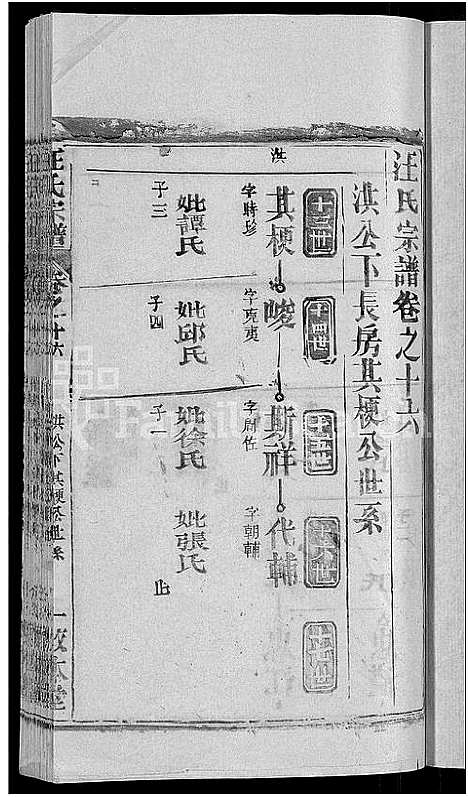 汪氏宗譜卷之十六
洪公下長房其梗公世系
十三世
十四世
十五世
十六世
十七世
洪
其梗
峻
斯祥
代輔
字時珍
字克夷
字周佐
字朝輔
妣譚氏
妣邱氏
妣徐氏
妣張氏
子三
子四
子一
止
汪氏宗譜
卷之十六
洪公下其梗公世系
一
敦本堂